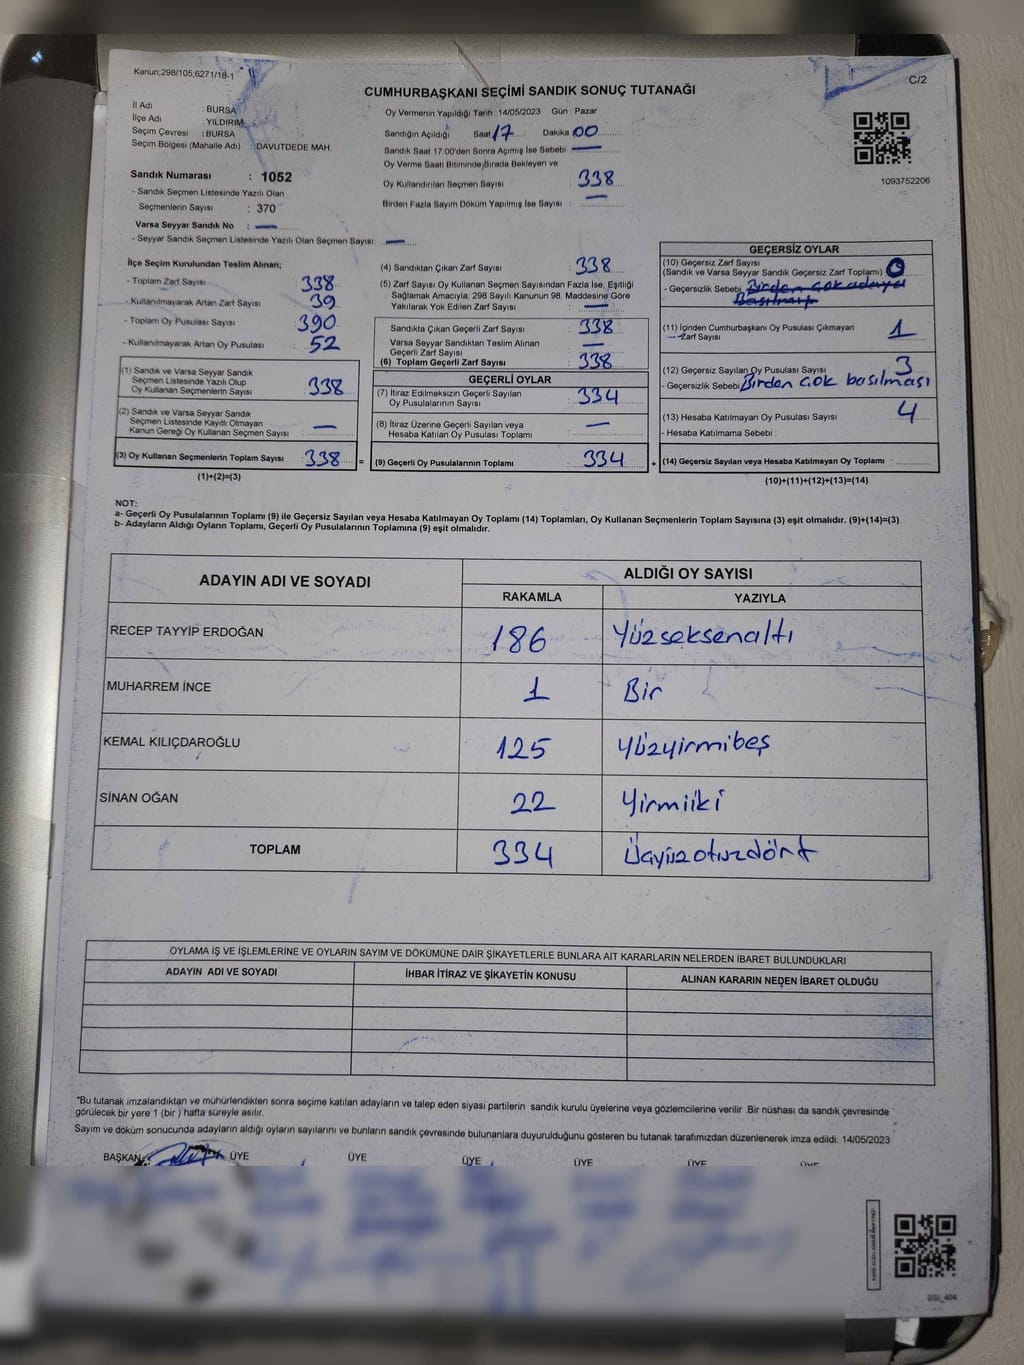 Kanun;298/105,6271/18-1
C/2
CUMHURBAŞKANI SEÇİMİ SANDIK SONUÇ TUTANAĞI
İl Adı : BURSA
İlçe Adı : YILDIRIM
Seçim Çevresi : BURSA
Seçim Bölgesi (Mahalle Adı) : DAVUTDEDE MAH.
Sandık Numarası : 1052
- Sandık Seçmen Listesinde Yazılı Olan
Seçmenlerin Sayısı : 370
Varsa Seyyar Sandık No : —
- Seyyar Sandık Seçmen Listesinde Yazılı Olan Seçmen Sayısı: —
Oy Vermenin Yapıldığı Tarih : 14/05/2023 Gün : Pazar
Sandığın Açıldığı Saat 17 Dakika 00
Sandık Saat 17:00'den Sonra Açımış İse Sebebi —
Oy Verme Saati Bitiminde Sırada Bekleyen ve
Oy Kullandırılan Seçmen Sayısı : 338
Birden Fazla Sayım Döküm Yapılmış İse Sayısı : —
1093752206
İlçe Seçim Kurulundan Teslim Alınan;
- Toplam Zarf Sayısı : 338
- Kullanılmayarak Artan Zarf Sayısı : 39
- Toplam Oy Pusulası Sayısı : 390
- Kullanılmayarak Artan Oy Pusulası : 52
(1) Sandık ve Varsa Seyyar Sandık
Seçmen Listesinde Yazılı Olup
Oy Kullanan Seçmenlerin Sayısı : 338
(2) Sandık ve Varsa Seyyar Sandık
Seçmen Listesinde Kayıtlı Olmayan
Kanun Gereği Oy Kullanan Seçmen Sayısı : —
(3) Oy Kullanan Seçmenlerin Toplam Sayısı : 338 =
(1)+(2)=(3)
(4) Sandıktan Çıkan Zarf Sayısı : 338
(5) Zarf Sayısı Oy Kullanan Seçmen Sayısından Fazla İse, Eşitliği
Sağlamak Amacıyla, 298 Sayılı Kanunun 98. Maddesine Göre
Yakılarak Yok Edilen Zarf Sayısı : —
Sandıkta Çıkan Geçerli Zarf Sayısı : 338
Varsa Seyyar Sandıktan Teslim Alınan
Geçerli Zarf Sayısı : —
(6) Toplam Geçerli Zarf Sayısı : 338
GEÇERLİ OYLAR
(7) İtiraz Edilmeksizin Geçerli Sayılan
Oy Pusulalarının Sayısı : 334
(8) İtiraz Üzerine Geçerli Sayılan veya
Hesaba Katılan Oy Pusulası Toplamı : —
(9) Geçerli Oy Pusulalarının Toplamı : 334 +
GEÇERSİZ OYLAR
(10) Geçersiz Zarf Sayısı
(Sandık ve Varsa Seyyar Sandık Geçersiz Zarf Toplamı) : 0
- Geçersizlik Sebebi : Birden çok adaya
Basılmış
(11) İçinden Cumhurbaşkanı Oy Pusulası Çıkmayan
Zarf Sayısı : 1
(12) Geçersiz Sayılan Oy Pusulası Sayısı : 3
- Geçersizlik Sebebi : Birden çok basılması
(13) Hesaba Katılmayan Oy Pusulası Sayısı : 4
- Hesaba Katılmama Sebebi :
(14) Geçersiz Sayılan veya Hesaba Katılmayan Oy Toplamı :
(10)+(11)+(12)+(13)=(14)
NOT:
a- Geçerli Oy Pusulalarının Toplamı (9) ile Geçersiz Sayılan veya Hesaba Katılmayan Oy Toplamı (14) Toplamları, Oy Kullanan Seçmenlerin Toplam Sayısına (3) eşit olmalıdır. (9)+(14)=(3)
b- Adayların Aldığı Oyların Toplamı, Geçerli Oy Pusulalarının Toplamına (9) eşit olmalıdır.
ADAYIN ADI VE SOYADI ALDIĞI OY SAYISI
RAKAMLA YAZIYLA
RECEP TAYYİP ERDOĞAN 186 Yüzseksenaltı
MUHARREM İNCE 1 Bir
KEMAL KILIÇDAROĞLU 125 Yüzyirmibeş
SİNAN OĞAN 22 Yirmiiki
TOPLAM 334 Üçyüzotuzdört
OYLAMA İŞ VE İŞLEMLERİNE VE OYLARIN SAYIM VE DÖKÜMÜNE DAİR ŞİKAYETLERLE BUNLARA AİT KARARLARIN NELERDEN İBARET BULUNDUKLARI
ADAYIN ADI VE SOYADI İHBAR İTİRAZ VE ŞİKAYETİN KONUSU ALINAN KARARIN NEDEN İBARET OLDUĞU
*Bu tutanak imzalandıktan ve mühürlendikten sonra seçime katılan adayların ve talep eden siyasi partilerin sandık kurulu üyelerine veya gözlemcilerine verilir .Bir nüshası da sandık çevresinde
görülecek bir yere 1 (bir ) hafta süreyle asılır.
Sayım ve döküm sonucunda adayların aldığı oyların sayılarını ve bunların sandık çevresinde bulunanlara duyurulduğunu gösteren bu tutanak tarafımızdan düzenlenerek imza edildi. 14/05/2023
BAŞKAN ÜYE ÜYE ÜYE ÜYE ÜYE ÜYE
SSI_404